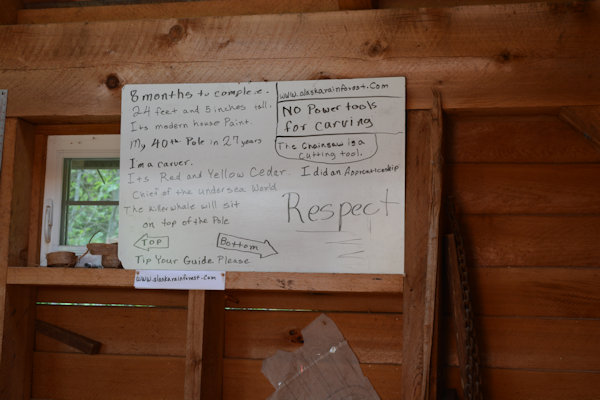 8 months to complete.
24 feet and 5 inches tall.
Its modern house Paint.
My 40th Pole in 27 years
I'm a carver.
Its Red and Yellow Ceder. I did an Apprenticeship
Chief of the undersea World
The Killerwhale will sit
on top of the Pole
Top
Bottom
Tip Your Guide. Please
www.alaskarainforest.Com
NO Power tools
for carving
The Chainsaw is a
Cutting tool.
Respect
www.alaskarainforest.Com